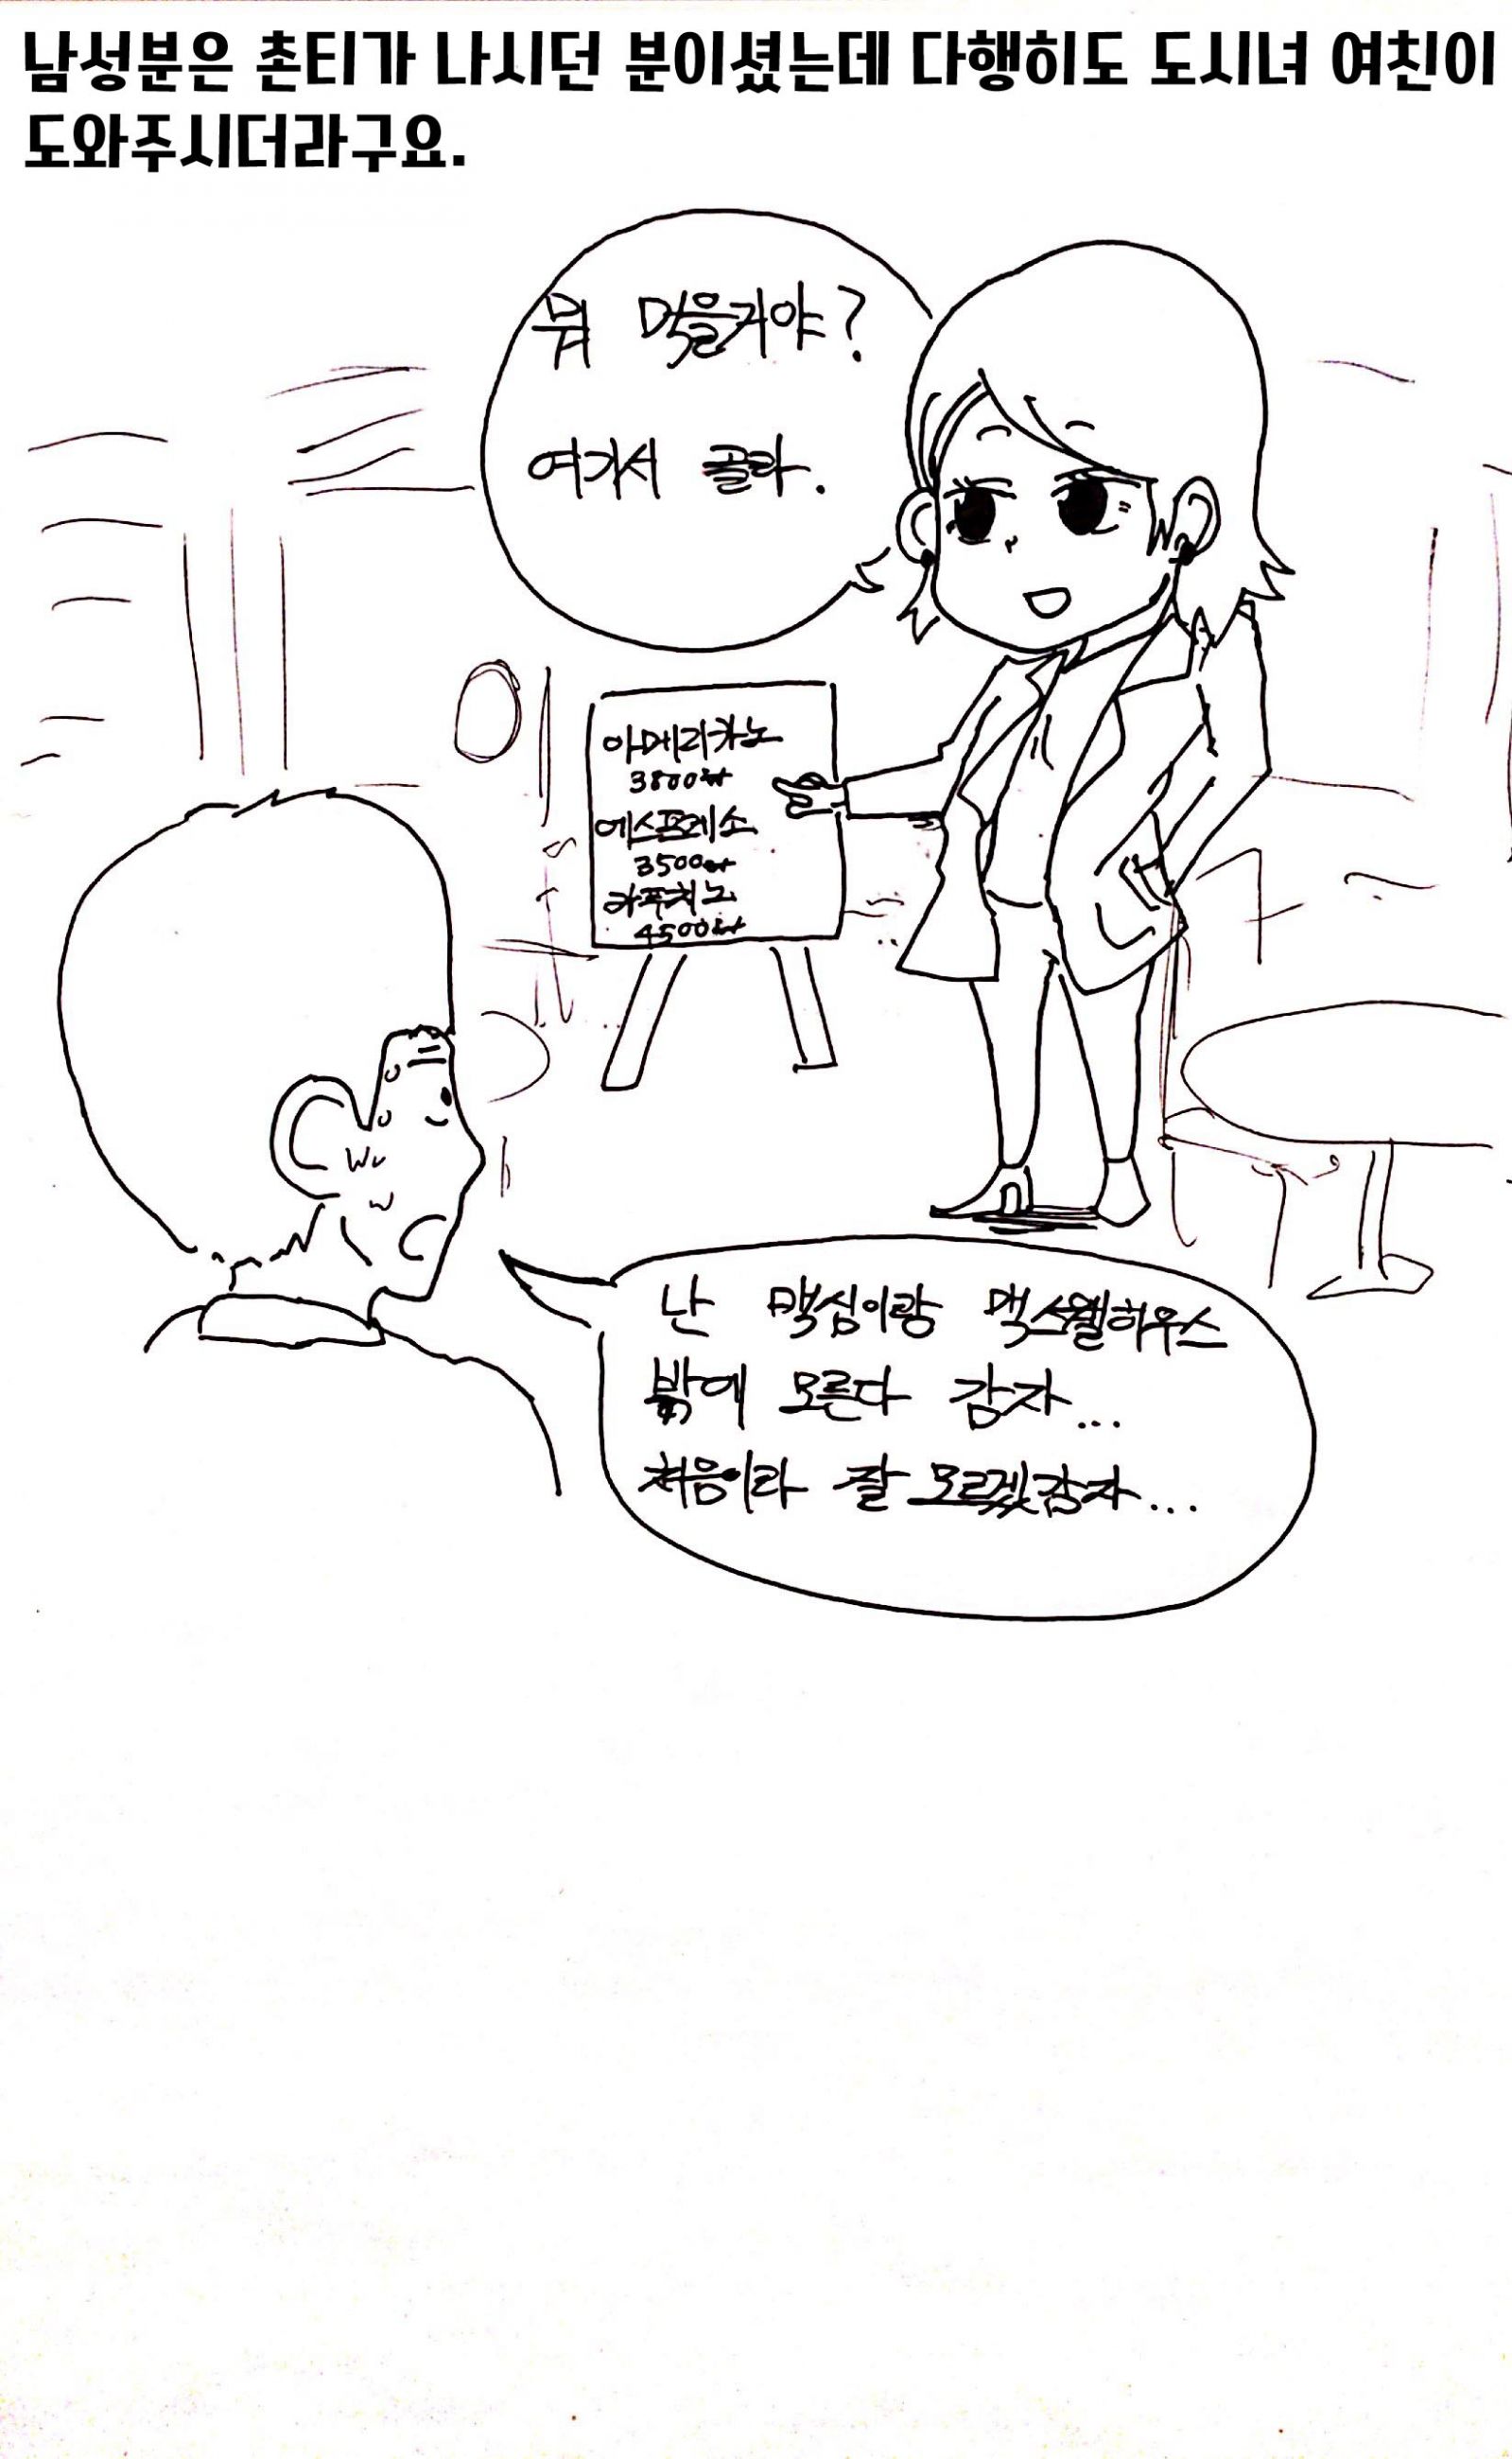 남성분은 촌티가 나시던 분이셨는데 다행히도 도시녀 여친이
도와주시더라구요.
뭐 먹을거야?
여기서 골라.
아메리카노
3800원
에스프레소
3500원
카푸치노
4500원
난 맥심이랑 맥스웰하우스
밖에 모른다 감자...
처음이라 잘 모르겠감자...